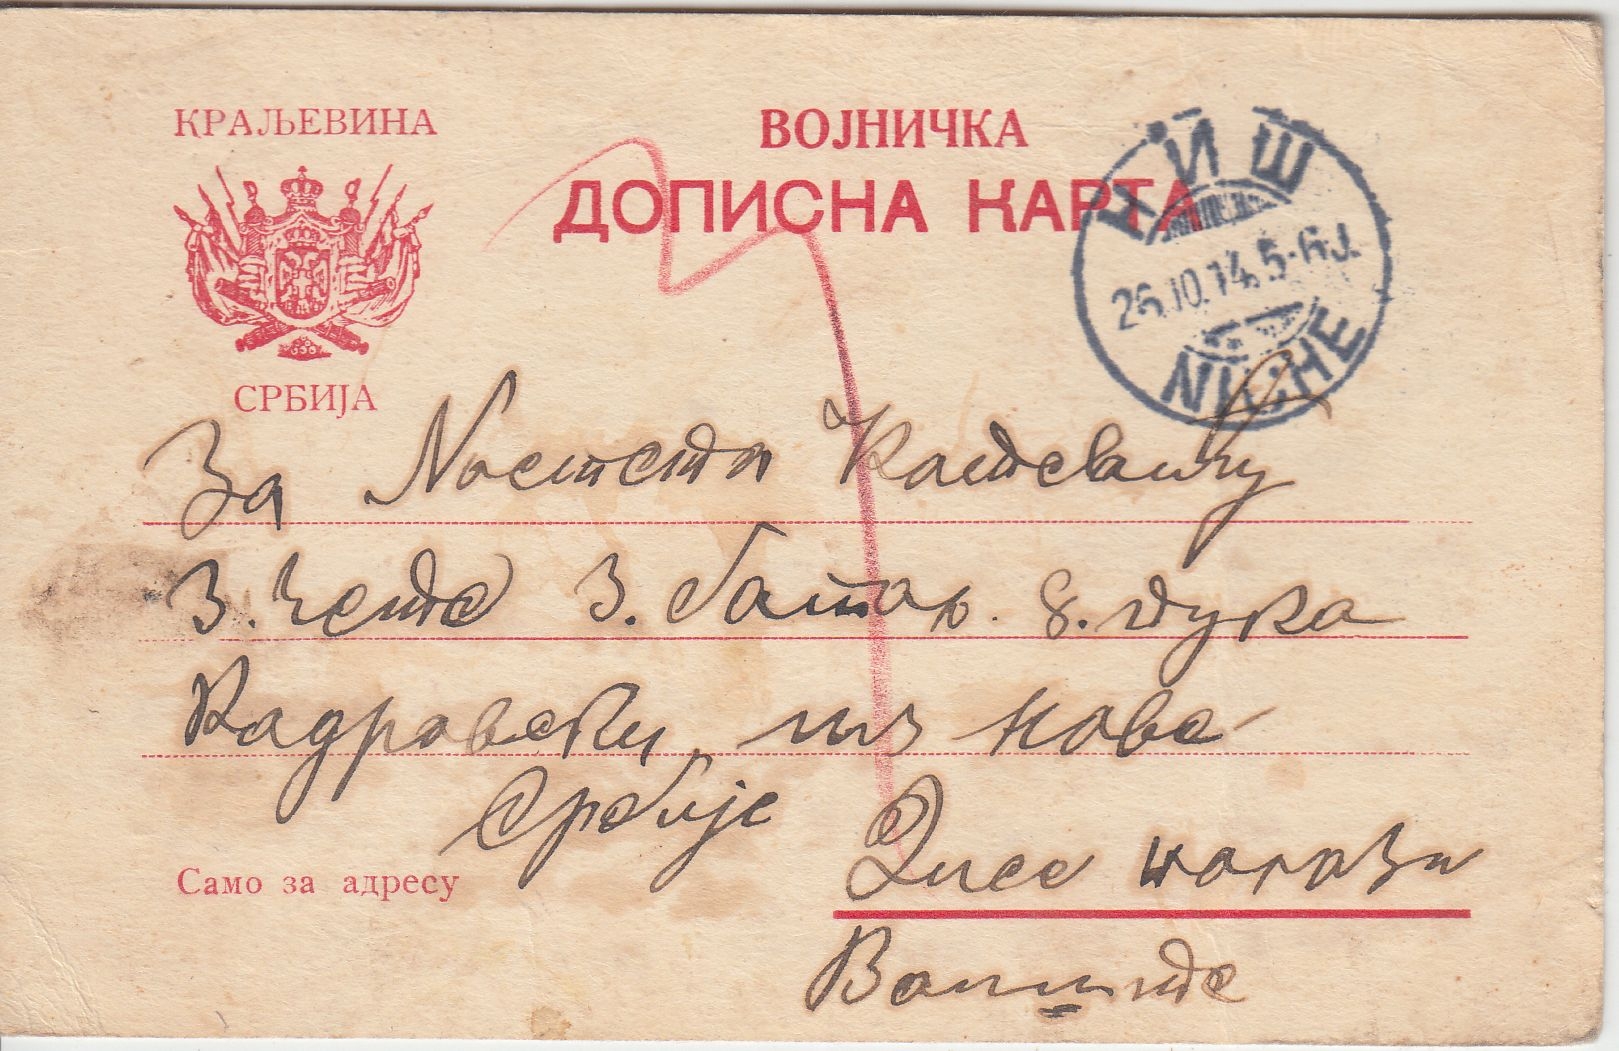 КРАЉЕВИНА
СРБИЈА
ВОЈНИЧКА
ДОПИСНА КАРТА
НИШ
26.10.14. 5-6 J.
NICHE
За Костевићу
3. чете 3. батаљ. 8. пука
Кадровски, из нове
Србије
Само за адресу
налази